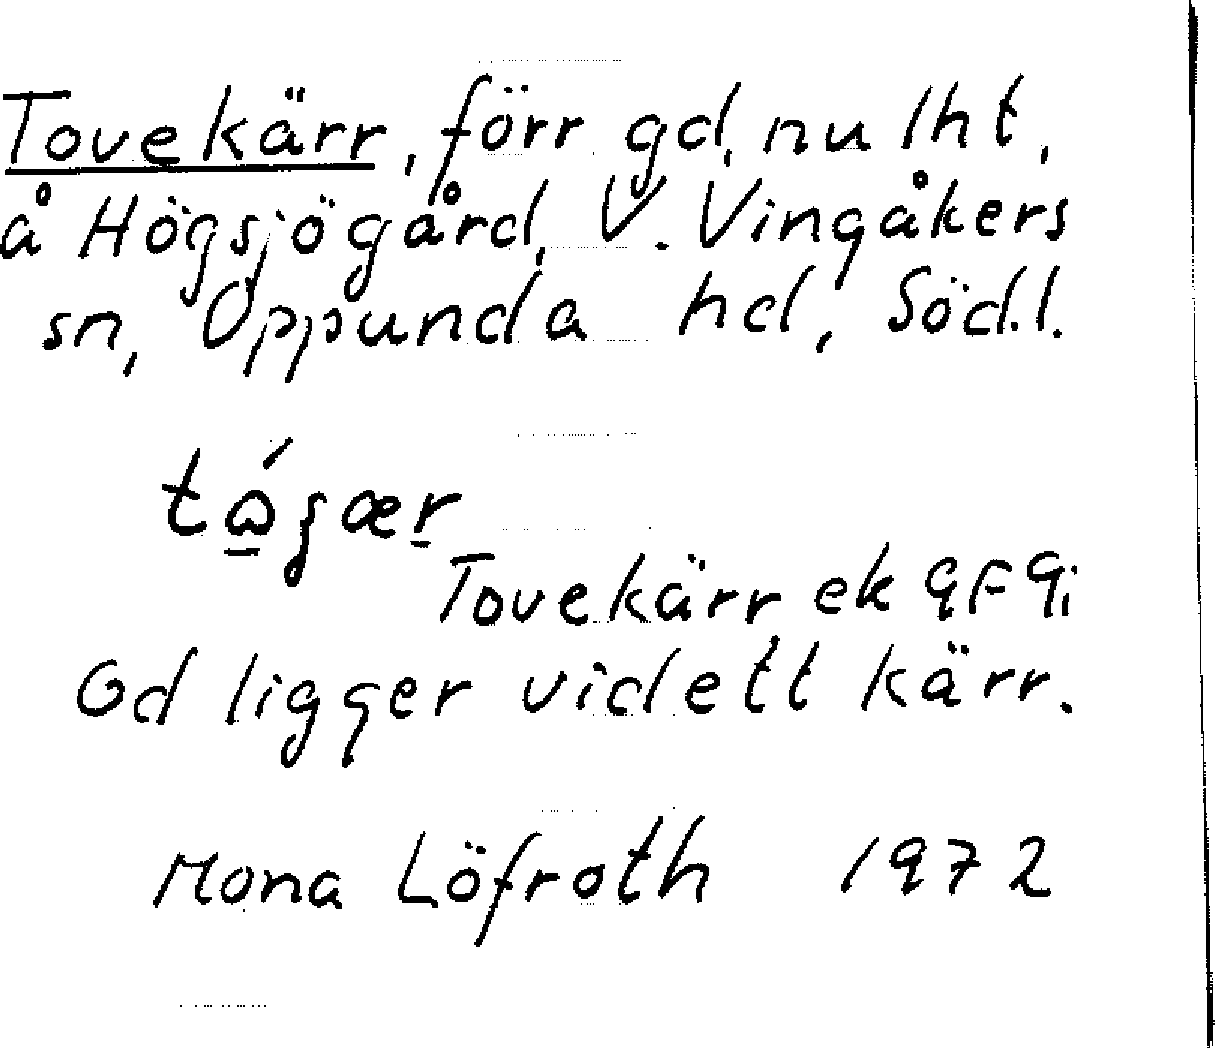 Tovekärr, förr gd, nu lht,
å Högsjögård, V. Vingåkers
sn, Oppunda hd, Södl.
Tovekärr ek 9F9i
Gd ligger vid ett kärr.
Mona Löfroth 1972